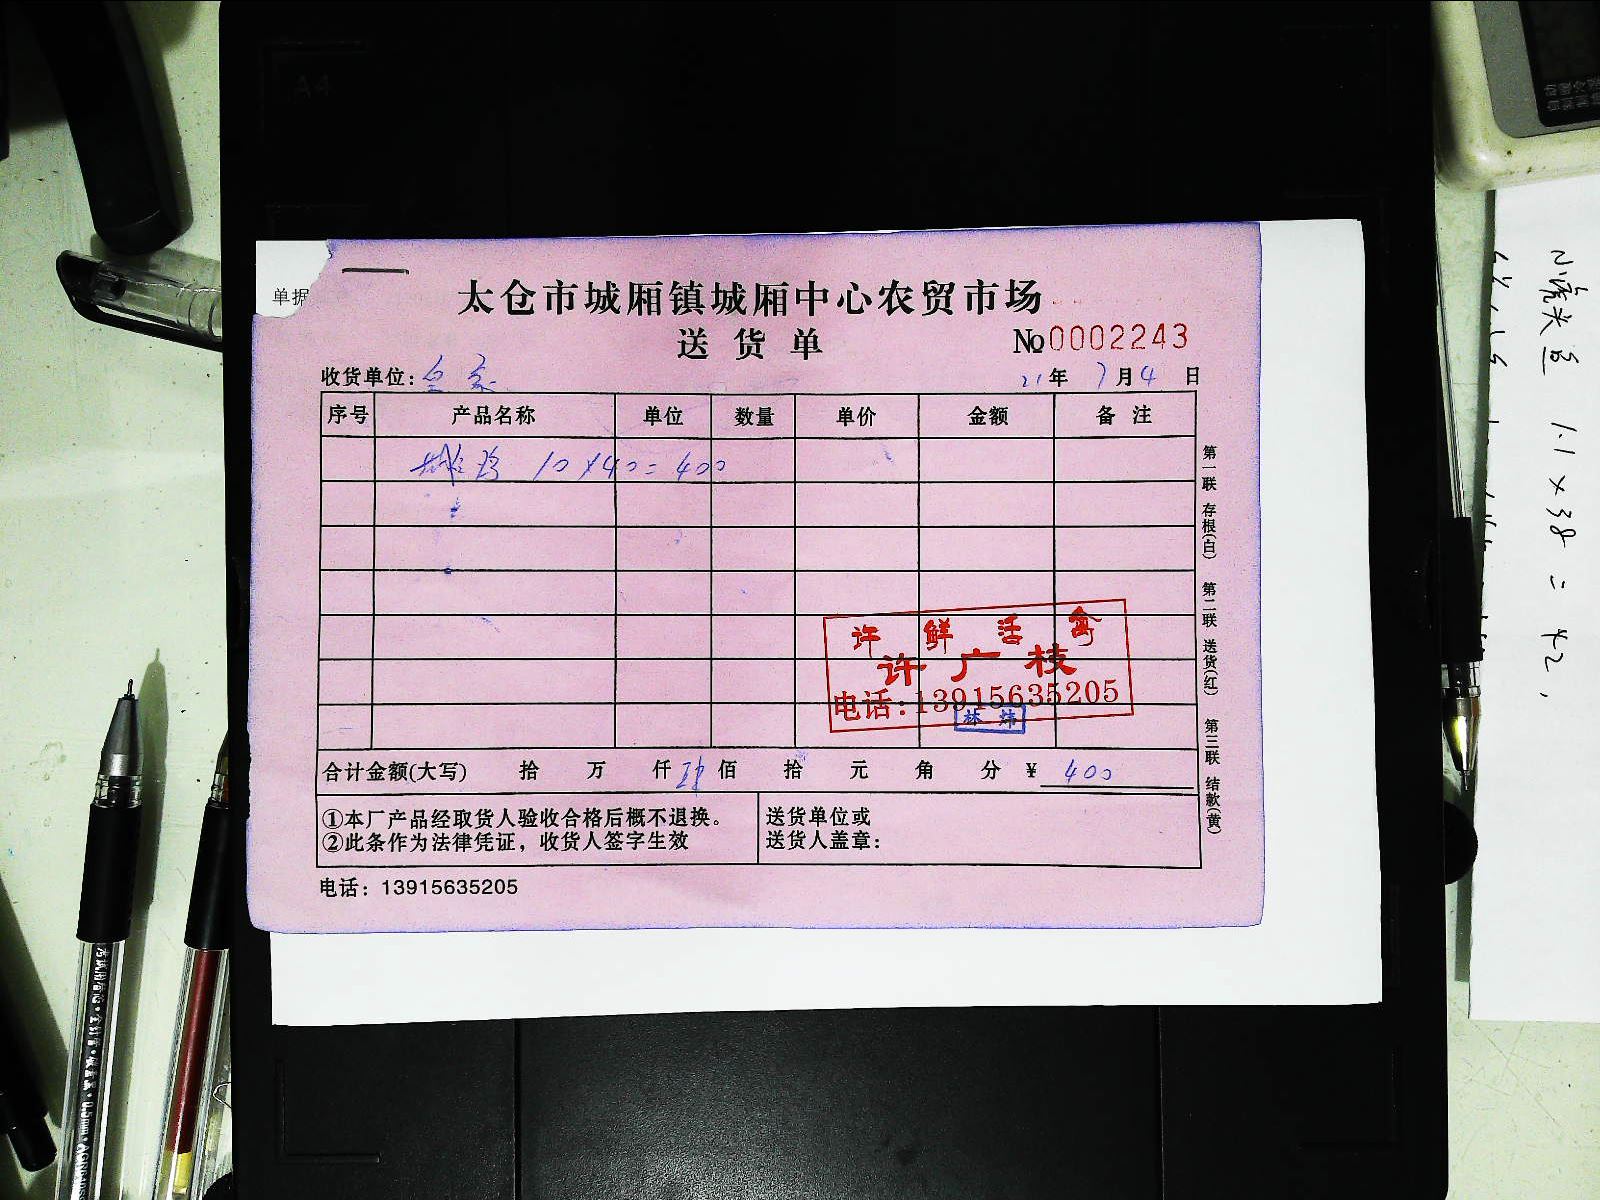 A4
单据
太仓市城厢镇城厢中心农贸市场
送货单
№0002243
收货单位:
21年 7月4日
序号 产品名称 单位 数量 单价 金额 备注
10×40=400
许 鲜 活 禽
许广枝
电话:13915635205
林炜
合计金额(大写) 拾 万 仟 肆佰 拾 元 角 分 ¥ 400
①本厂产品经取货人验收合格后概不退换。
②此条作为法律凭证，收货人签字生效
送货单位或
送货人盖章:
电话：13915635205
第一联 存根(白) 第二联 送货(红) 第三联 结款(黄)
1.1×38=42.
0.5mm